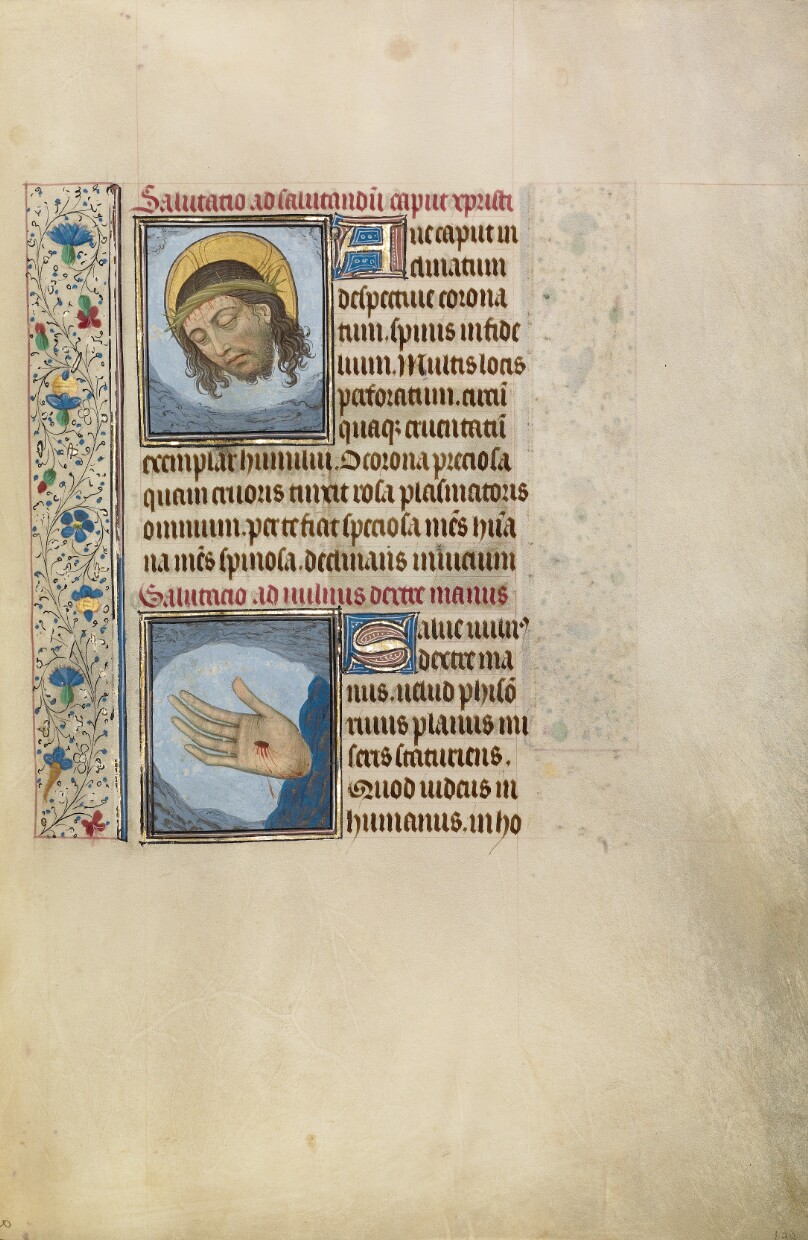 Salutatio ad salutandū caput xpristi
Aue caput in
clinatum
despectiue corona
tum. spinis infide
lium. Multis locis
perforatum. circū
quaqꝫ cruentatū
exemplar humilui. O corona preciosa
quam cruoris tinxit rosa plasmatoris
omnium. per te fiat speciosa mēs hūa
na mēs spinosa. declinans inuicium
Salutacio ad uulnus dextre manus
Salue uulnꝰ
dextre ma
nus. uelud phisō
riuus planus mi
seris scaturiens.
Quod uideus in
humanus. in ho